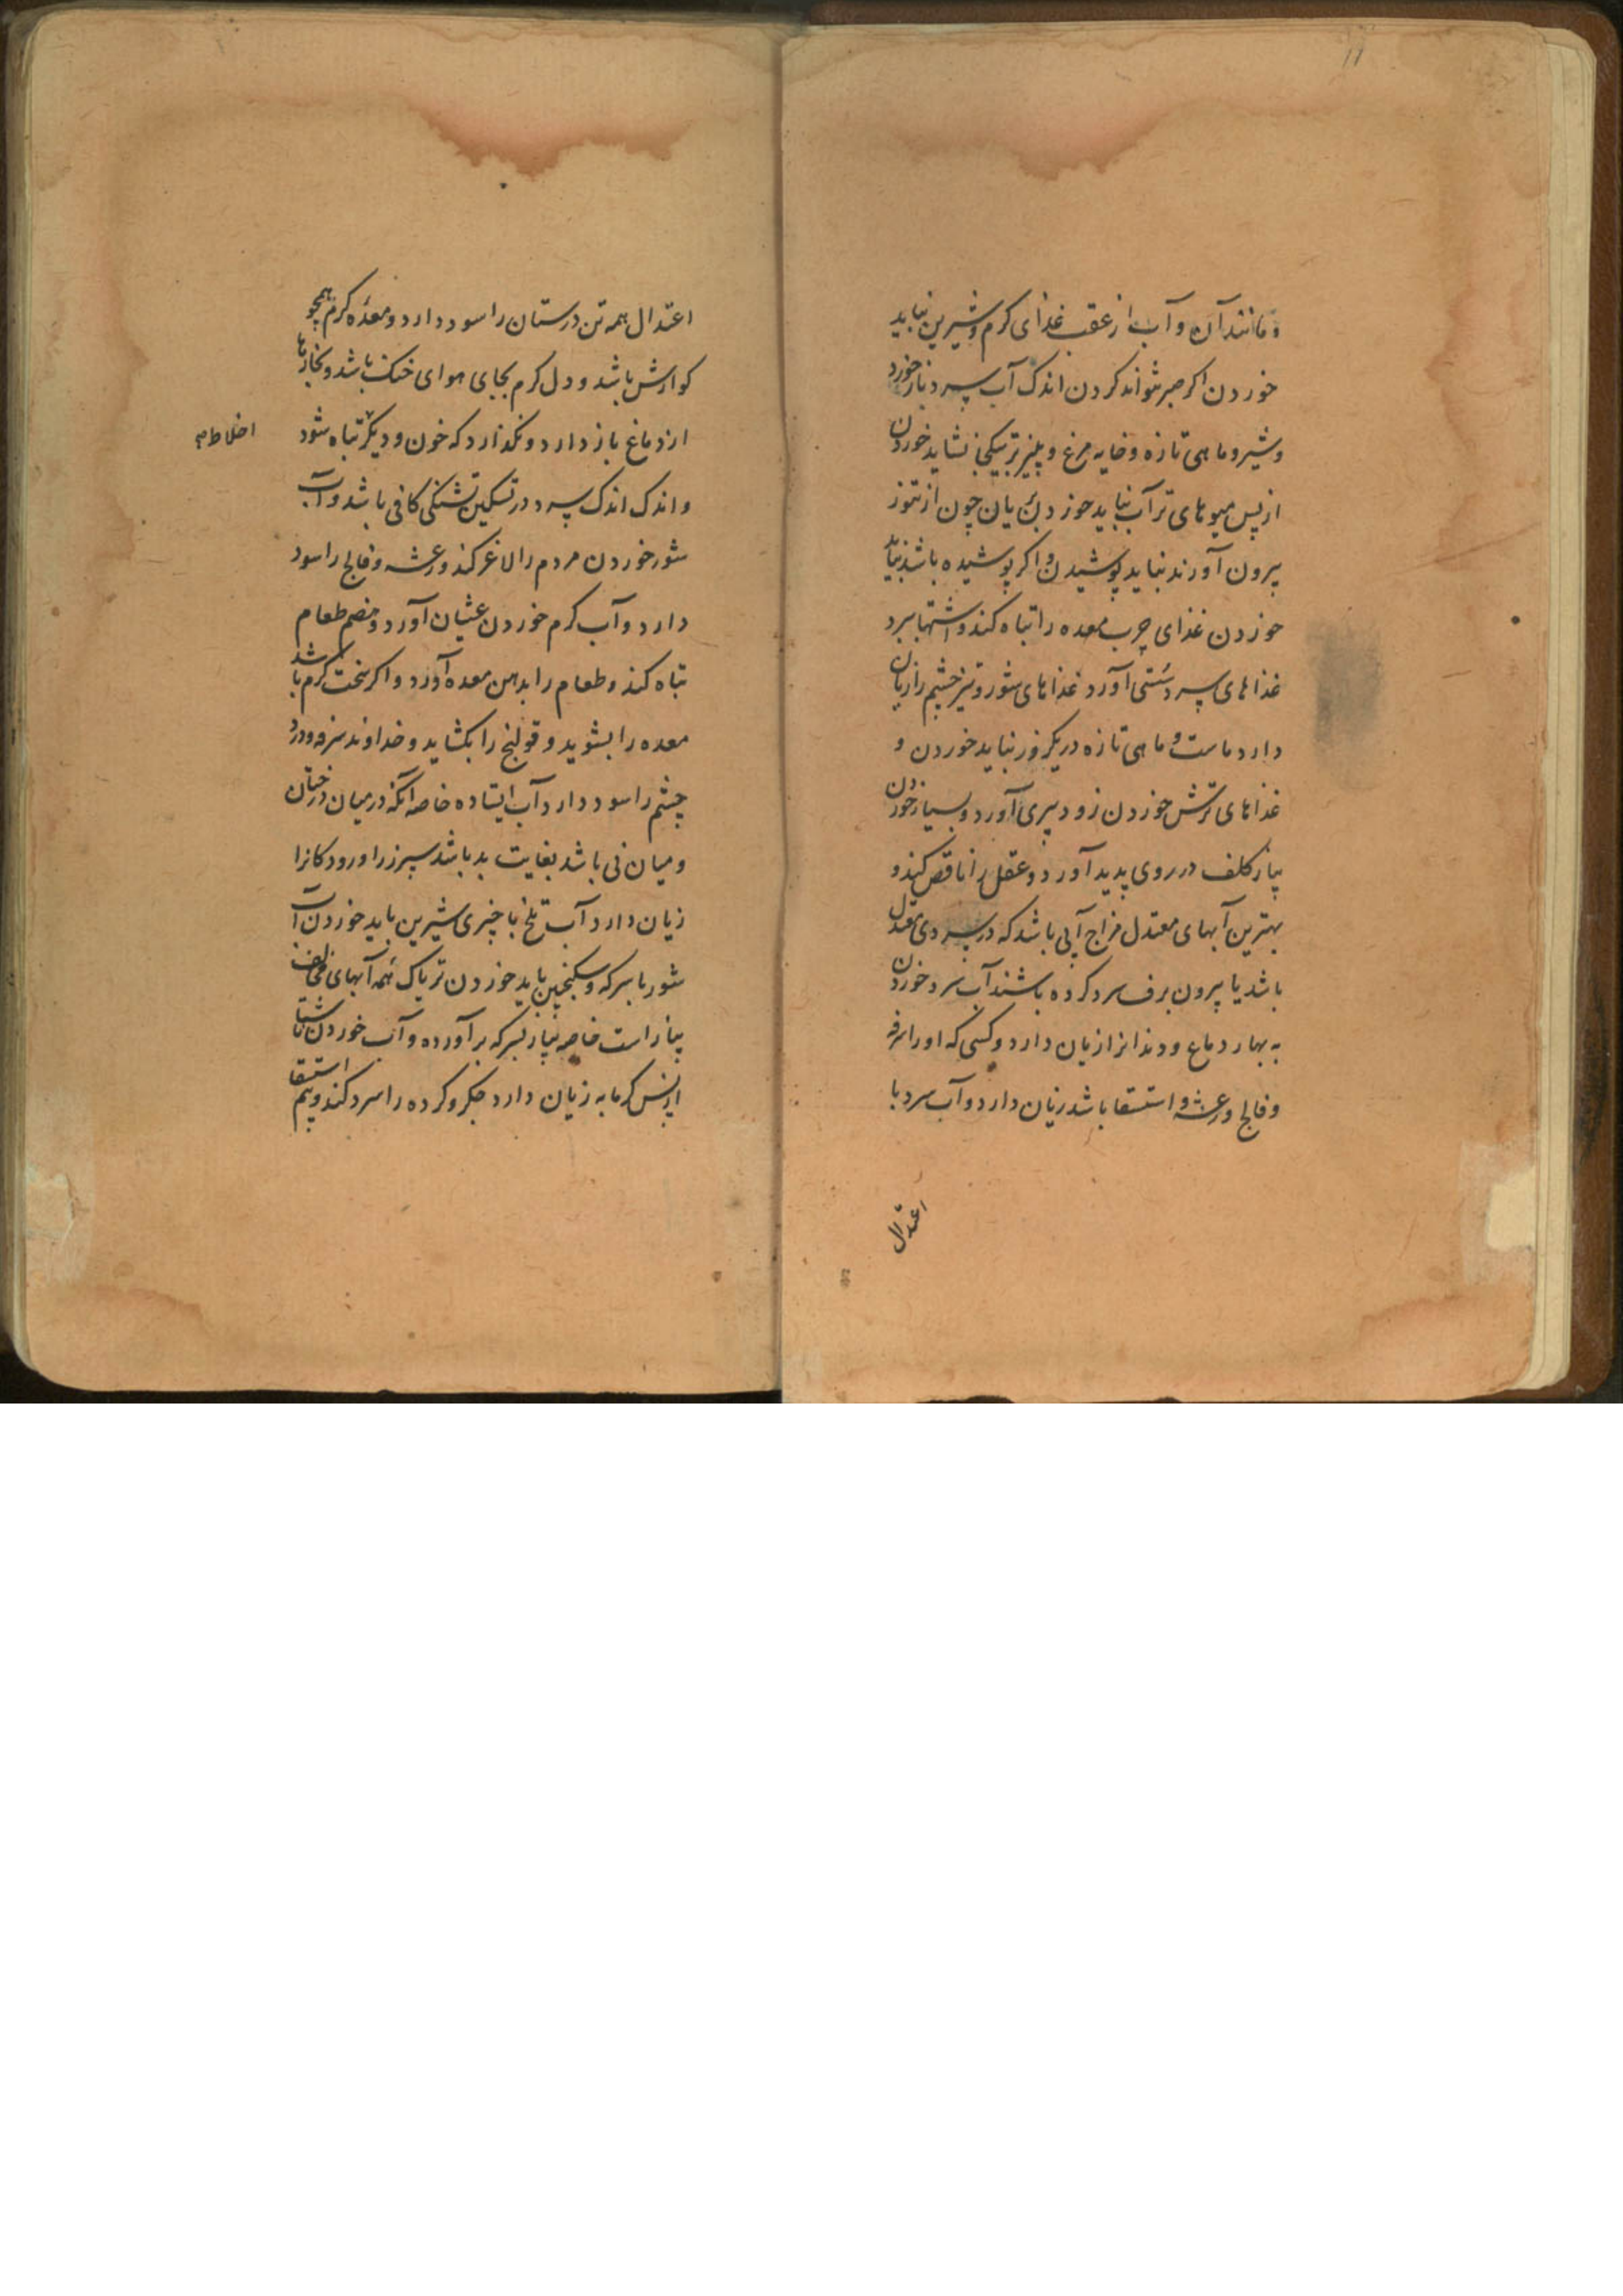 ۱۱
و مانند آن و آب از عقب غذای کرم و شیرین نباید
خوردن اکر صبر نتواند کردن اندک آب سرد باز خورد
و شیر و ماهی تازه و خایه مرغ و پنیر تر بیکجا نشاید خوردن
از پس میوهای تر آب نباید خوردن یان چون از تنور
بیرون آورند نباید پوشیدن و اکر پوشیده باشد نباید
خوردن غذای چرب معده را تباه کند و اشتها ببرد
غذاهای سرد سستی آورد غذاهای شور و تیز چشم را زیان
دارد ماست و ماهی تازه در یکروز نباید خوردن و
غذاهای ترش خوردن زود پیری آورد و بسیار خوردن
پیاز کلف در روی پدید آورد و عقل را ناقص کند و
بهترین آبهای معتدل مزاج آبی باشد که در سردی معتدل
باشد یا بیرون برف سرد کرده باشند آب سرد خوردن
به بهار دماغ و دندانرا زیان دارد و کسی که او را سرفه
و فالج و رعشه و استسقا باشد زیان دارد و آب سرد با
اعتدال
اعتدال همه تن درستان را سود دارد و معده کرم همچو
کوارش باشد و دل کرم بجای هوای خنک باشد و بخارها
از دماغ باز دارد و نکذارد که خون و دیکر تباه شود
اخلاط
و اندک اندک سرد در تسکین تشنکی کافی باشد و آب
شور خوردن مردم را لاغر کند و رعشه و فالج را سود
دارد و آب کرم خوردن غثیان آورد و هضم طعام
تباه کند و طعام را بدهن معده آورد و اکر سخت کرم باشد
معده را بشوید و قولنج را بکشاید و خداوند سرفه و درد
چشم را سود دارد آب ایستاده خاصه آنکه در میان درختان
و میان نی باشد بغایت بد باشد سپرز را و رودکانرا
زیان دارد آب تلخ با چیزی شیرین باید خوردن آب
شور با سرکه و سکنجبین باید خوردن تریاک همه آبهای مخالف
پیاز است خاصه پیاز بسرکه بر آورده و آب خوردن ناشتا
از پس کرمابه زیان دارد جکر و کرده را سرد کند و بیم استسقا